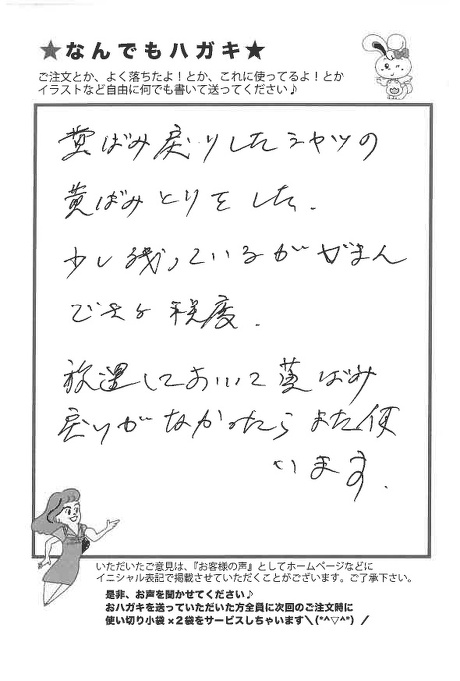 ★なんでもハガキ★
ご注文とか、よく落ちたよ！とか、これに使ってるよ！とか
イラストなど自由に何でも書いて送ってください♪
黄ばみ戻りしたシャツの
黄ばみとりをした.
少し残っているががまん
できる程度.
放置しておいて黄ばみ
戻りがなかったらまた使
います.
いただいたご意見は、『お客様の声』としてホームページなどに
イニシャル表記で掲載させていただくことがございます。ご了承下さい。
是非、お声を聞かせてください♪
おハガキを送っていただいた方全員に次回のご注文時に
使い切り小袋×2袋をサービスしちゃいます＼(*^▽^*)／